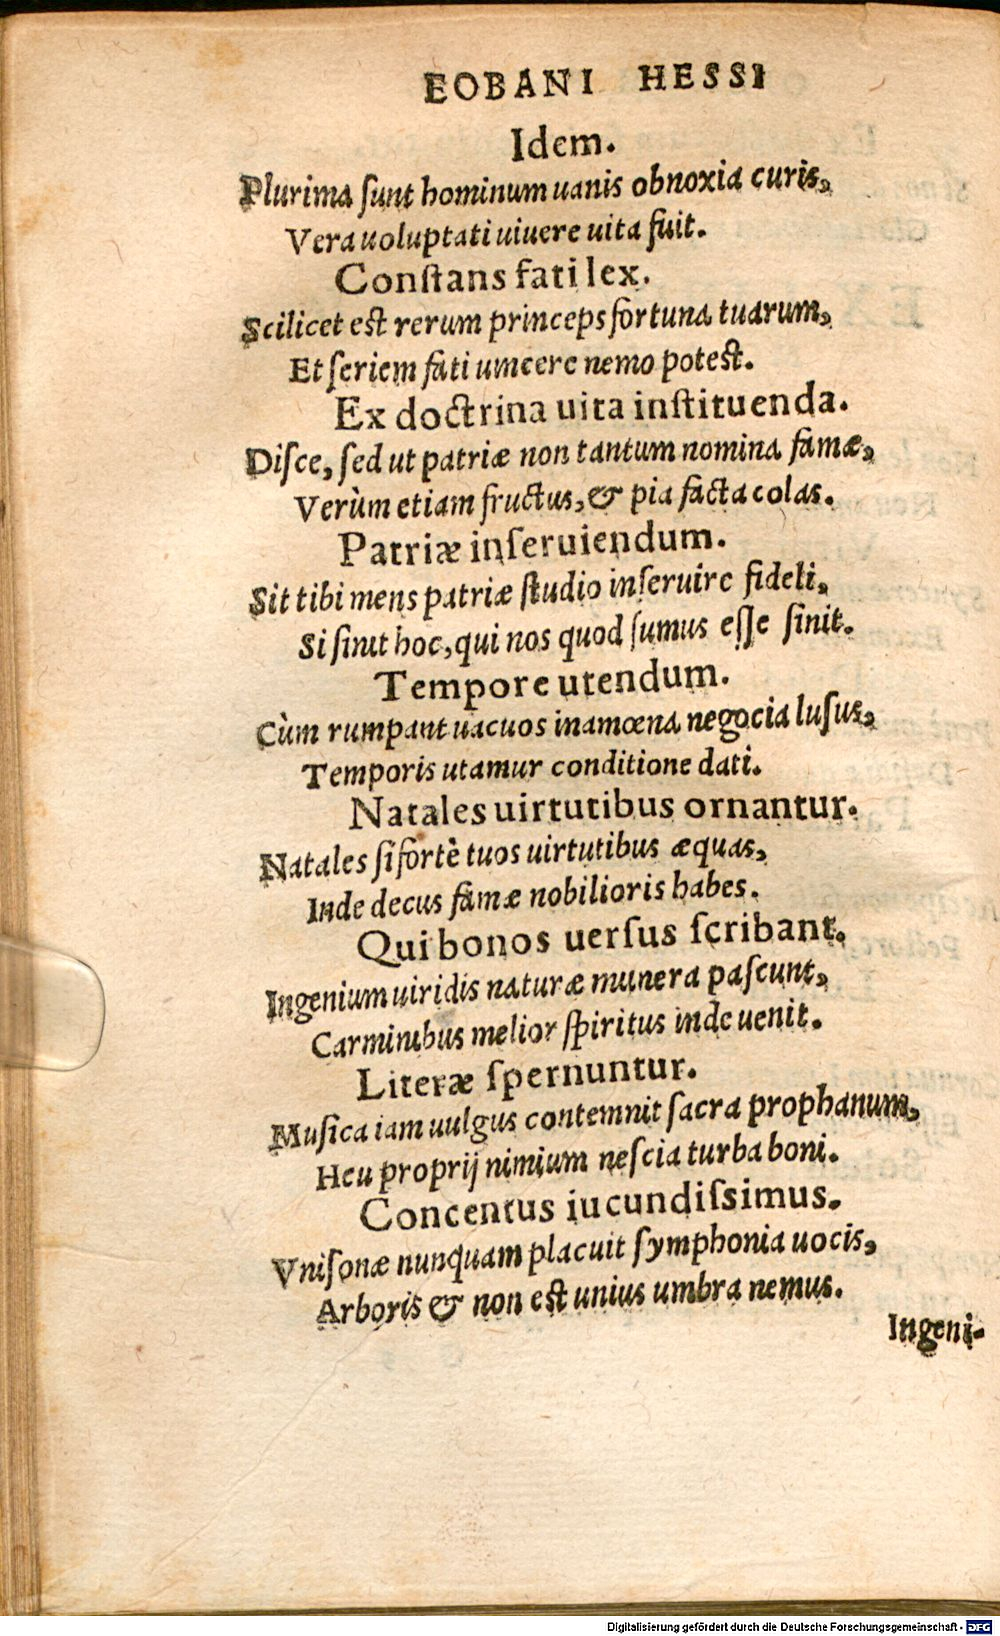 EOBANI HESSI
Idem.
Plurima ſunt hominum uanis obnoxia curis,
Vera uoluptati uiuere uita fuit.
Conſtans fati lex.
Scilicet est rerum princeps fortuna tuarum,
Et ſeriem fati uincere nemo potest.
Ex doctrina uita inſtituenda.
Diſce, ſed ut patriæ non tantum nomina famæ,
Verùm etiam fructus, & pia facta colas.
Patriæ inſeruiendum.
Sit tibi mens patriæ ſtudio inſeruire fideli,
Si ſinit hoc, qui nos quod ſumus eſſe ſinit.
Tempore utendum.
Cùm rumpant uacuos inamœna negocia luſus,
Temporis utamur conditione dati.
Natales uirtutibus ornantur.
Natales ſi fortè tuos uirtutibus æquas,
Inde decus famæ nobilioris habes.
Qui bonos uerſus ſcribant.
Ingenium uiridis naturæ munera paſcunt,
Carminibus melior ſpiritus inde uenit.
Literæ ſpernuntur.
Muſica iam uulgus contemnit ſacra prophanum,
Heu proprij nimium neſcia turba boni.
Concentus iucundiſsimus.
Vniſonæ nunquam placuit ſymphonia uocis,
Arboris & non est unius umbra nemus.
Ingeni-
Digitalisierung gefördert durch die Deutsche Forschungsgemeinschaft - DFG